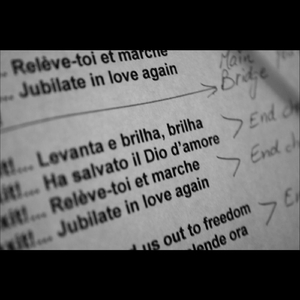 ... Relève-toi et marche
... Jubilate in love again
Main
Bridge
it!... Levanta e brilha, brilha
xit!... Ha salvato il Dio d'amore
xit!... Relève-toi et marche
xit!... Jubilate in love again
End
End
d us out to freedom
lende ora